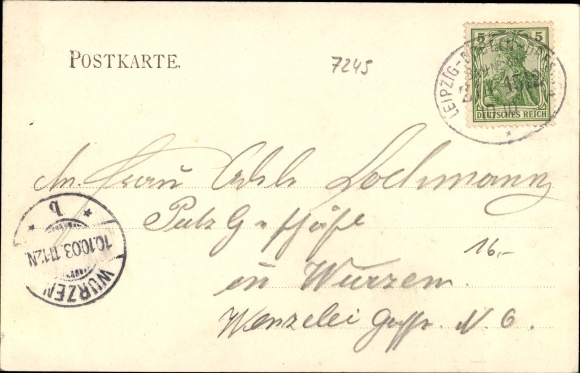 POSTKARTE.
7245
5
DEUTSCHES REICH
LEIPZIG-
An Frau Lochmann
Putz Geschäft
16,-
in Wurzen.
Wenzelei Gasse. N 6.
WURZEN
10.10.03. 11-12N.
b